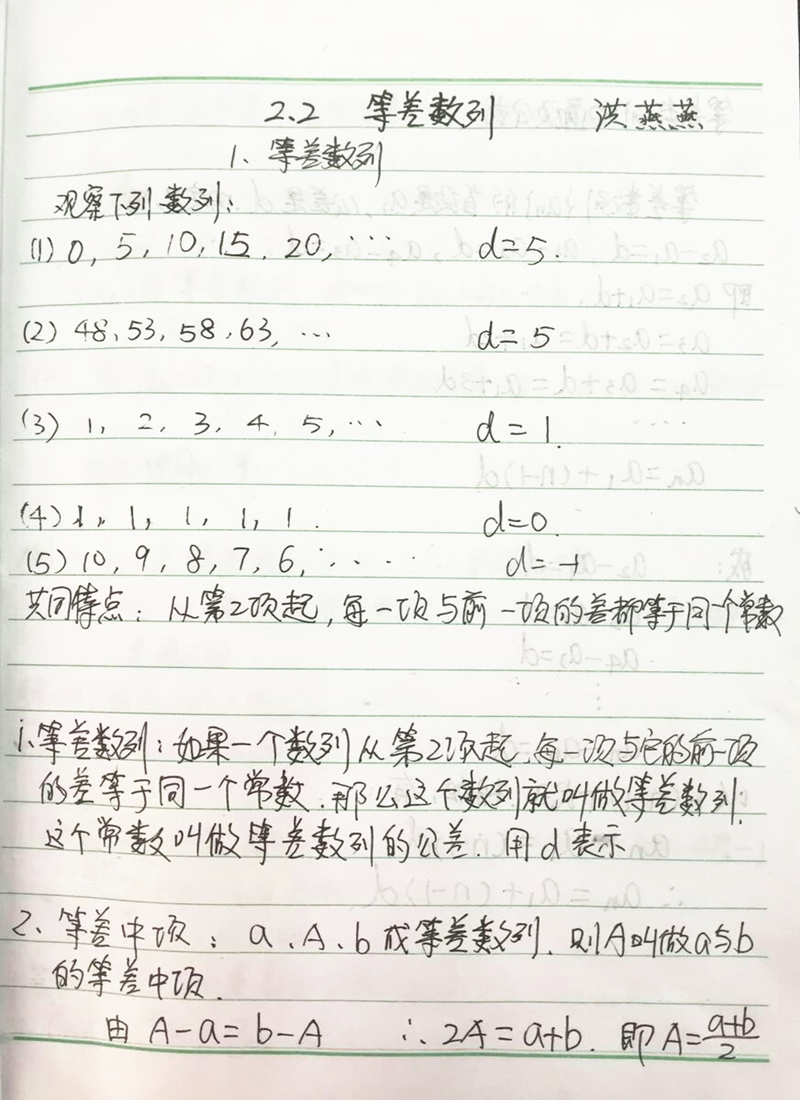 2.2 等差数列 洪燕燕
1、等差数列
观察下列数列：
(1) 0, 5, 10, 15, 20, … d=5.
(2) 48, 53, 58, 63, … d=5
(3) 1, 2, 3, 4, 5, … d=1.
(4) 1, 1, 1, 1, 1. d=0.
(5) 10, 9, 8, 7, 6, … d=-1
共同特点：从第2项起，每一项与前一项的差都等于同一个常数
1、等差数列：如果一个数列从第2项起，每一项与它的前一项
的差等于同一个常数，那么这个数列就叫做等差数列.
这个常数叫做等差数列的公差. 用d表示
2、等差中项：a、A、b成等差数列. 则A叫做a与b
的等差中项.
由 A-a=b-A ∴2A=a+b. 即 A=\frac{a+b}{2}